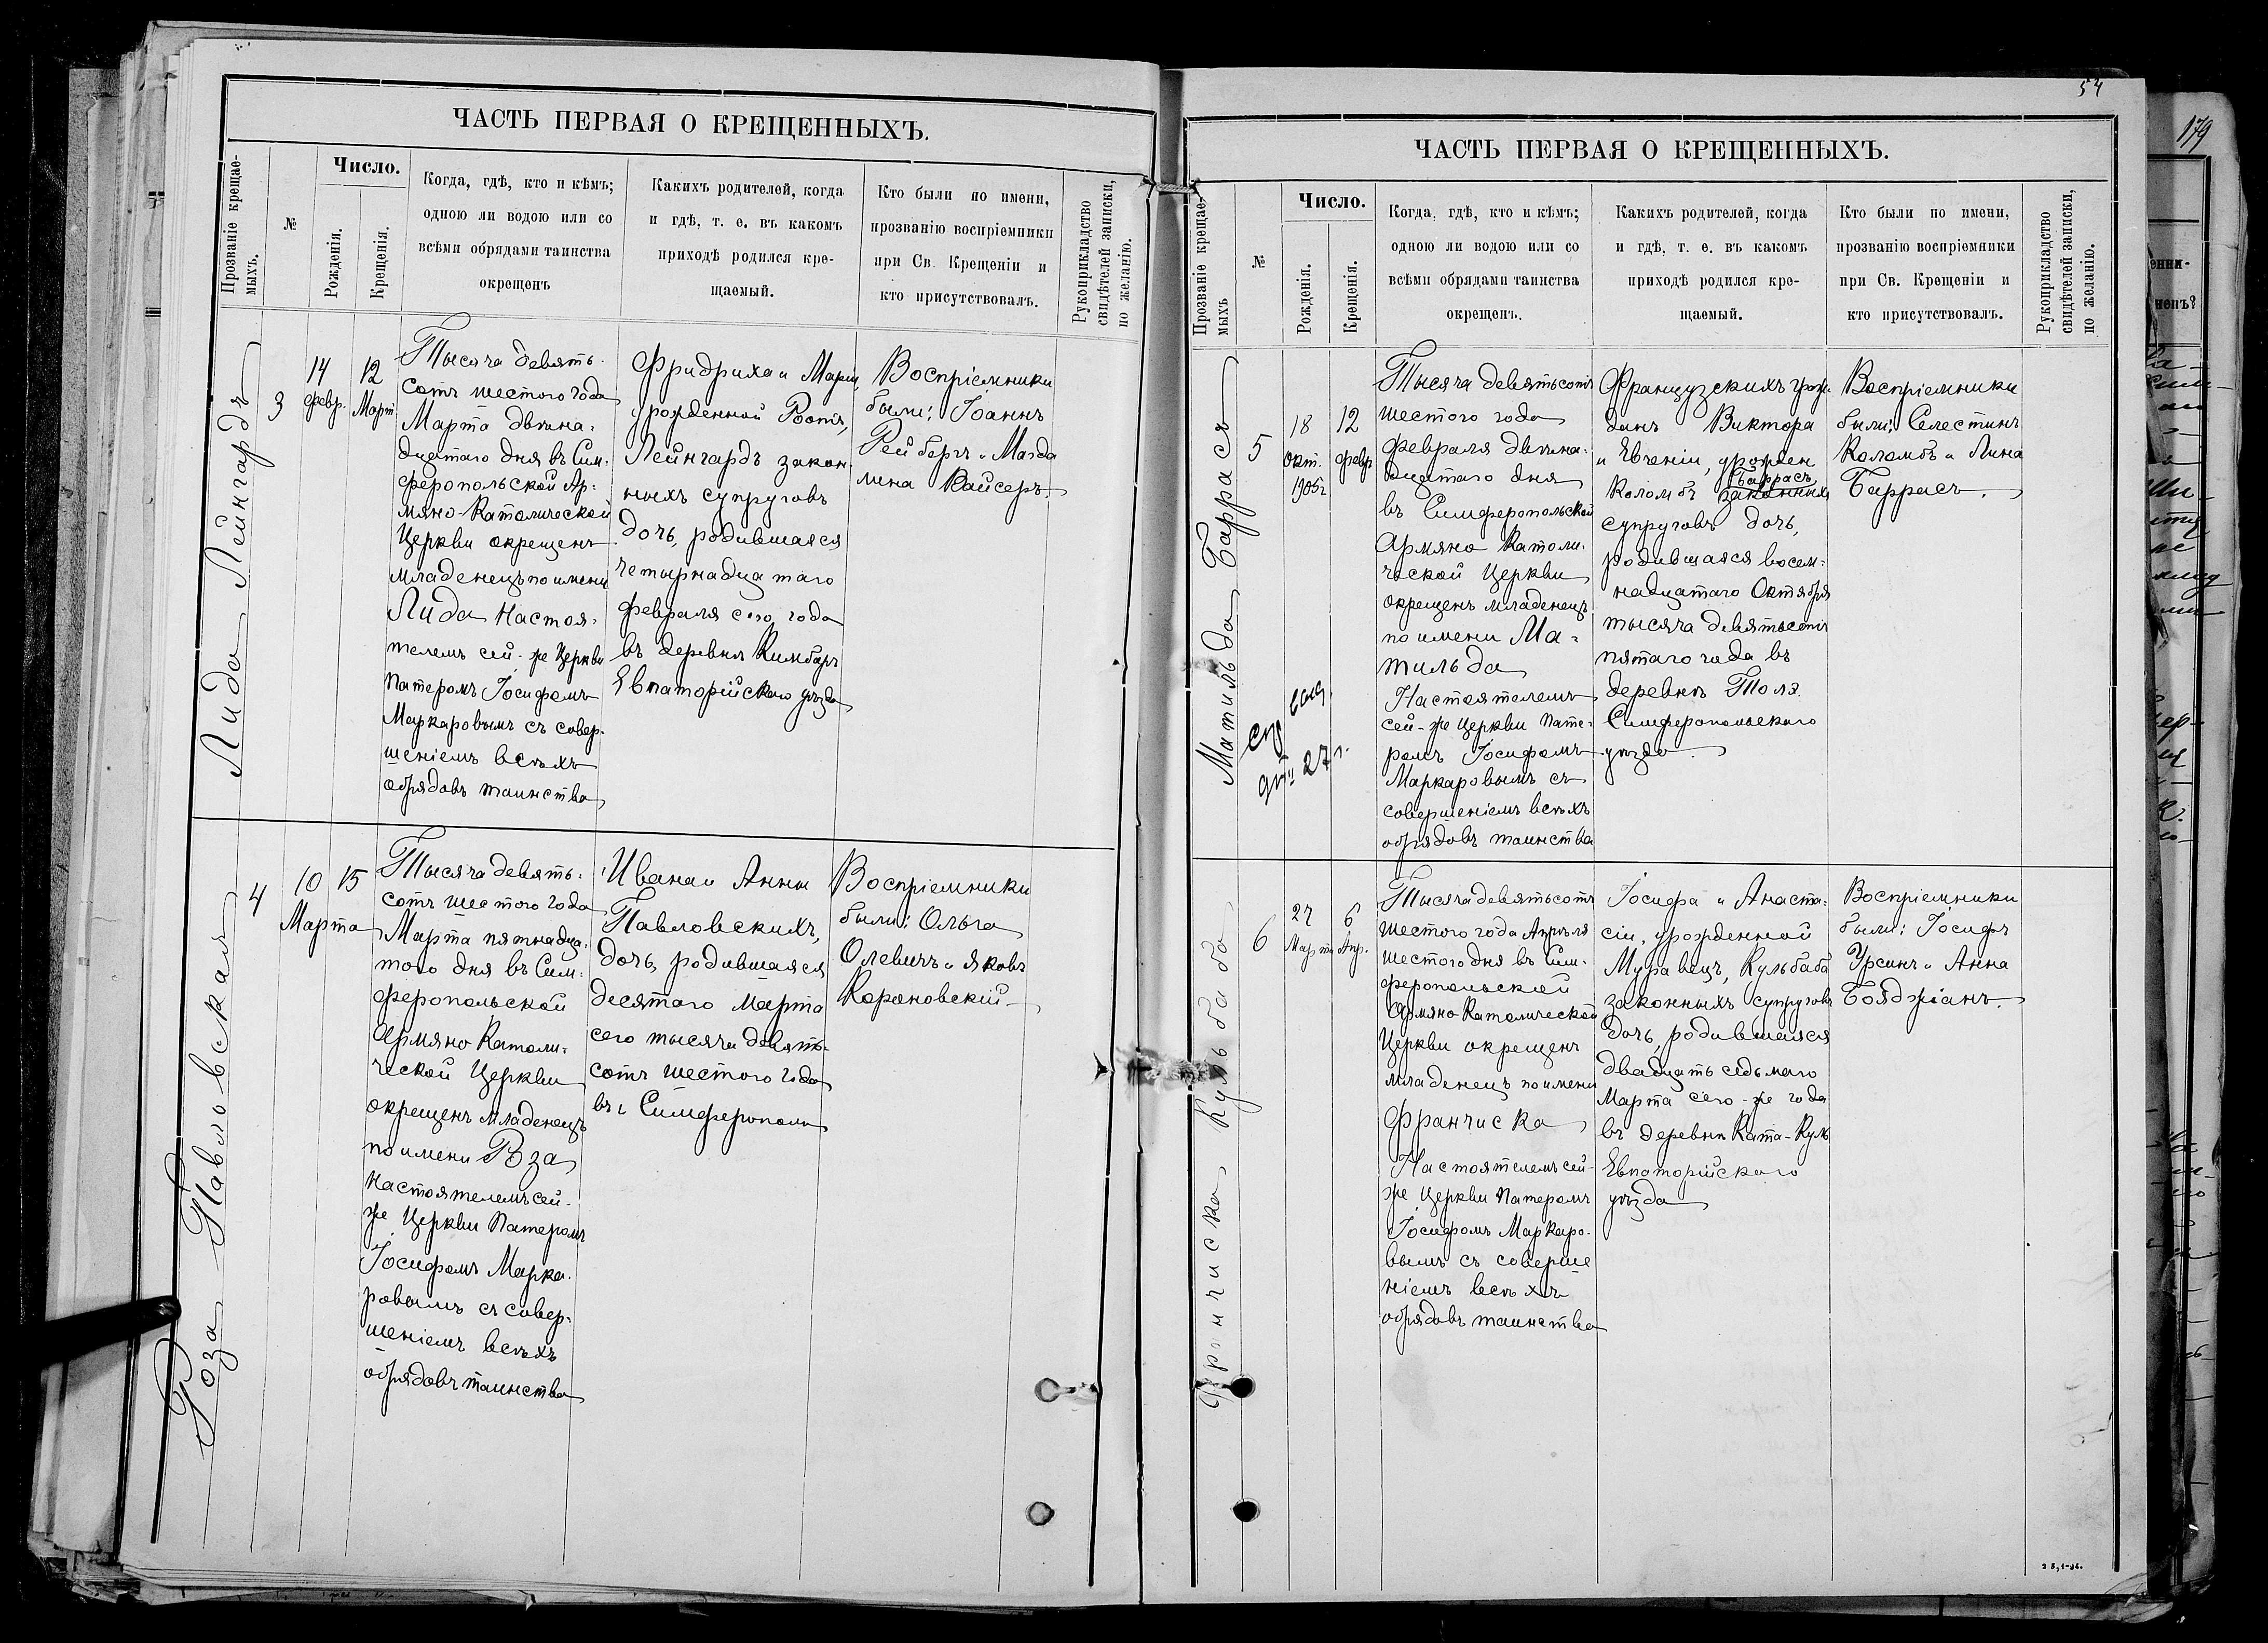 ЧАСТЬ ПЕРВАЯ О КРЕЩЕННЫХЪ.
Прозваніе крещае-
мыхъ.
№
Число.
Рожденія.
Крещенія.
Когда, гдѣ, кто и кѣмъ;
одною ли водою или со
всѣми обрядами таинства
окрещенъ
Какихъ родителей, когда
и гдѣ, т. е. въ какомъ
приходѣ родился кре-
щаемый.
Кто были по имени,
прозванію воспріемники
при Св. Крещеніи и
кто присутствовалъ.
Рукоприкладство
свидѣтелей записки,
по желанію.
Лида Лейнгардъ
3
14
февр.
12
Март.
Тысяча девять-
сотъ шестого года
Марта двѣна-
дцатаго дня въ Сим-
феропольской Ар-
мяно-Католической
Церкви окрещенъ
младенецъ по имени
Лида Настоя-
телемъ сей-же Церкви
Патеромъ Іосифомъ
Маркаровымъ съ совер-
шеніемъ всѣхъ
обрядовъ таинства
Фридриха и Маріи
урожденной Ротъ,
Лейнгардъ закон-
ныхъ супруговъ
дочь, родившаяся
четырнадцатаго
февраля сего года
въ деревнѣ Кимбаръ
Евпаторійскаго уѣзда
Воспріемники
были: Іоаннъ
Рейбергъ и Магда
лина Кайсеръ.
Роза Павловская
4
10 15
Марта
Тысяча девять-
сотъ шестого года
Марта пятнадца-
таго дня въ Сим-
феропольской
Армяно Католи-
ческой Церкви
окрещенъ младенецъ
по имени Роза
Настоятелемъ сей-
же Церкви Патеромъ
Іосифомъ Марка-
ровымъ съ совер-
шеніемъ всѣхъ
обрядовъ таинства
Ивана и Анны
Павловскихъ,
дочь, родившаяся
десятаго Марта
сего тысяча девять-
сотъ шестого года
въ г. Симферополѣ
Воспріемники
были: Ольга
Олевичъ и Яковъ
Корановскій
54
ЧАСТЬ ПЕРВАЯ О КРЕЩЕННЫХЪ.
Прозваніе крещае-
мыхъ
№
Число.
Рожденія.
Крещенія.
Когда, гдѣ, кто и кѣмъ;
одною ли водою или со
всѣми обрядами таинства
окрещенъ.
Какихъ родителей, когда
и гдѣ, т. е. въ какомъ
приходѣ родился кре-
щаемый.
Кто были по имени,
прозванію воспріемники
при Св. Крещеніи и
кто присутствовалъ.
Рукоприкладство
свидѣтелей записки,
по желанію.
Матильда Баррасъ
5
18
окт.
1905г.
12
февр
27 г.
Тысяча девятьсотъ
шестого года
февраля двѣна-
дцатаго дня
въ Симферопольской
Армяно Католи-
ческой Церкви
окрещенъ младенецъ
по имени Ма-
тильда
Настоятелемъ
сей-же Церкви Пате-
ромъ Іосифомъ
Маркаровымъ съ
совершеніемъ всѣхъ
обрядовъ таинства
Французскихъ граж-
данъ Виктора
и Евгеніи, урожден
Баррасъ
Коломбъ законныхъ
супруговъ дочь,
родившаяся восем-
надцатаго Октября
тысяча девятьсотъ
пятаго года въ
деревнѣ
Симферопольскаго
уѣзда.
Воспріемники
были: Селестинъ
Коломбъ и Лина
Баррасъ.
Франчиска Кульбаба
6
27
Марта
6
Апр.
Тысяча девятьсотъ
шестого года Апрѣля
шестого дня въ Сим-
феропольской
Армяно Католической
Церкви окрещенъ
младенецъ по имени
Франчиска
Настоятелемъ сей-
же Церкви Патеромъ
Іосифомъ Маркаро-
вымъ съ соверше
ніемъ всѣхъ
обрядовъ таинства
Іосифа и Анаста-
сіи, урожденной
Муравецъ, Кульбаба
законныхъ супруговъ
дочь, родившаяся
двадцать седьмаго
Марта сего-же года
въ деревнѣ Ката-Куль
Евпаторійскаго
уѣзда
Воспріемники
были: Іосифъ
Урсинъ и Анна
Бояджіанъ.
179